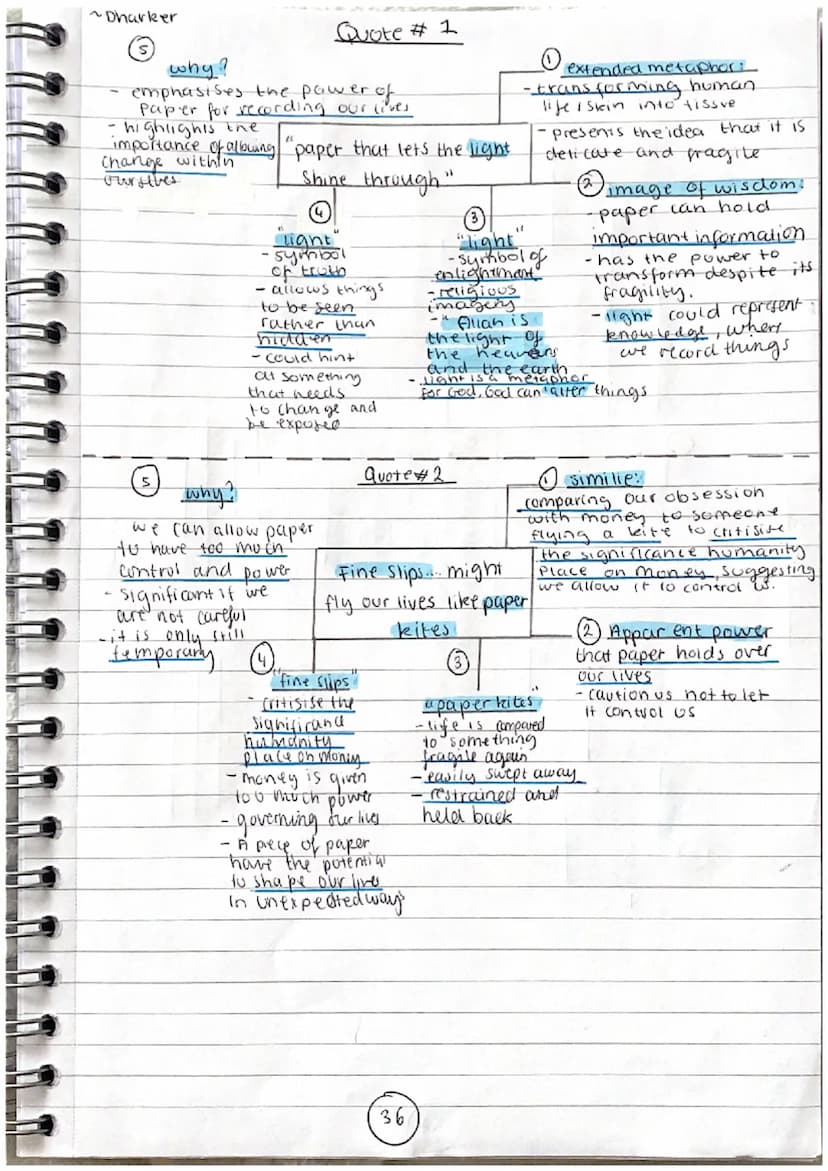 ~Dharker
Quote # 1
5
why?
- emphasises the power of
paper for recording our lives
- highlights the
importance of allowing
change within
ourselves
"paper that lets the light
shine through"
1 extended metaphor:
- transforming human
life/skin into tissue
- presents the idea that it is
delicate and fragile
2 image of wisdom:
- paper can hold
important information
- has the power to
transform despite its
fragility.
- light could represent
knowledge, where
we record things
3
"light"
- symbol of
enlightment
- religious
imagery
- "Allah is
the light of
the heavens
and the earth
- light is a metaphor
for God, God can alter things
4
"light"
- symbol
of truth
- allows things
to be seen
rather than
hidden
- could hint
at something
that needs
to change and
be exposed
Quote #2
5
why?
we can allow paper
to have too much
control and power
- significant if we
are not careful
- it is only still
temporary
Fine slips... might
fly our lives like paper
kites
1 similie:
comparing our obsession
with money to someone
flying a kite to critisise
the significance humanity
place on money, suggesting
we allow it to control us.
2 Apparent power
that paper holds over
our lives
- caution us not to let
it control us
3
"paper kites"
- life is compared
to something
fragile again
- easily swept away
- restrained and
held back
4
"fine slips"
- critisise the
humanity
place on money
- money is given
too much power
- governing our lives
- A piece of paper
have the potential
to shape our lives
in unexpected ways
36